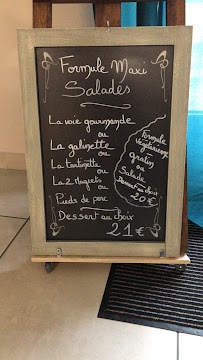 Formule Maxi
Salades
La voie gourmande
ou
La galinette
ou
La tartinette
ou
La 2 Magrets
ou
Pieds de porc
Dessert au choix
21 €
Formule
Végétarienne
gratin
ou
Salade
Dessert au choix
20 €